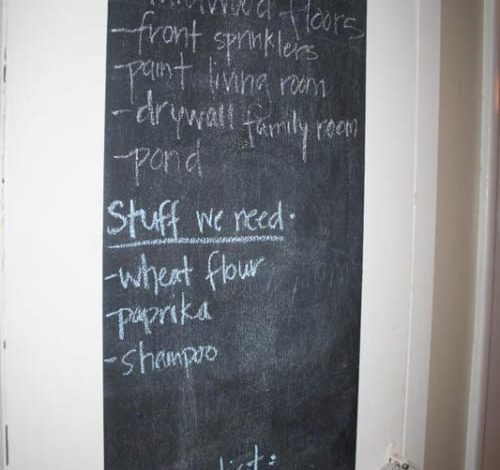 floors
-front sprinklers
-paint living room
-drywall family room
-pond
Stuff we need.
-wheat flour
-paprika
-shampoo